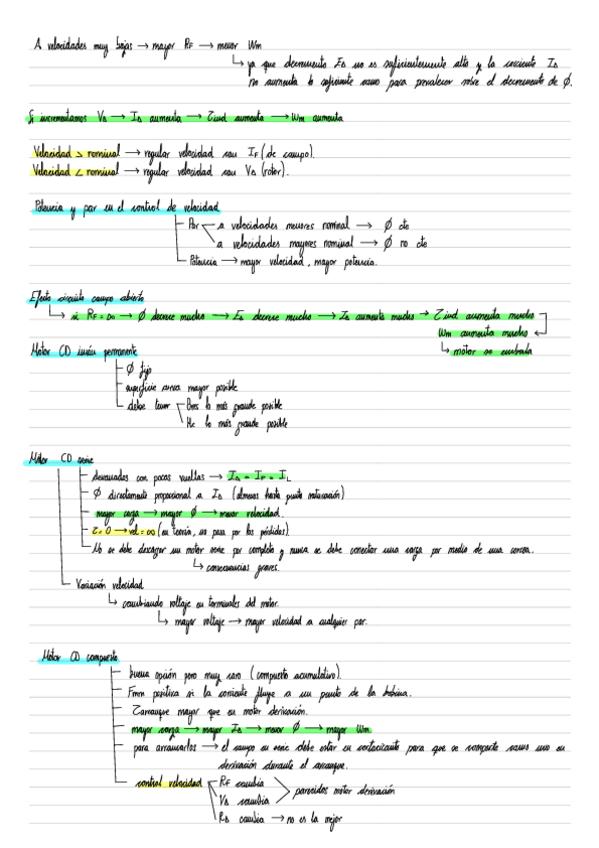 A velocidades muy bajas → mayor RF → menor Wm
↳ ya que decremento EA no es suficientemente alto y la corriente IA
no aumenta lo suficiente como para prevalecer sobre el decremento de Ø.
Si incrementamos VA → IA aumenta → τind aumenta → Wm aumenta
Velocidad > nominal → regular velocidad con IF (de campo).
Velocidad < nominal → regular velocidad con VA (rotor).
Potencia y par en el control de velocidad
Par a velocidades menores nominal → Ø cte
a velocidades mayores nominal → Ø no cte
Potencia → mayor velocidad, mayor potencia.
Efecto circuito campo abierto
↳ si RF = ∞ → Ø decrece mucho → EA decrece mucho → IA aumenta mucho → τind aumenta mucho
Wm aumenta mucho
↳ motor se embala
Motor CD imán permanente
Ø fijo
superficie curva mayor posible
debe tener Bres lo más grande posible
Hc lo más grande posible
Motor CD serie
devanados con pocas vueltas → IA = IF = IL
Ø directamente proporcional a IA (almenos hasta punto saturación)
mayor carga → mayor Ø → menor velocidad.
τ = 0 → vel = ∞ (en teoría, no pasa por las pérdidas).
No se debe descargar un motor serie por completo y nunca se debe conectar una carga por medio de una correa.
↳ consecuencias graves.
Variación velocidad
↳ cambiando voltaje en terminales del motor.
↳ mayor voltaje → mayor velocidad a cualquier par.
Motor CD compuesto
buena opción pero muy caro (compuesto acumulativo).
Fmm positiva si la corriente fluye a un punto de la bobina.
τarranque mayor que en motor derivación.
mayor carga → mayor IA → mayor Ø → mayor Wm
para arrancarlos → el campo en serie debe estar en cortocircuito para que se comporte como uno en
derivación durante el arranque.
control velocidad RF cambia
VA cambia parecidos motor derivación
RA cambia → no es la mejor